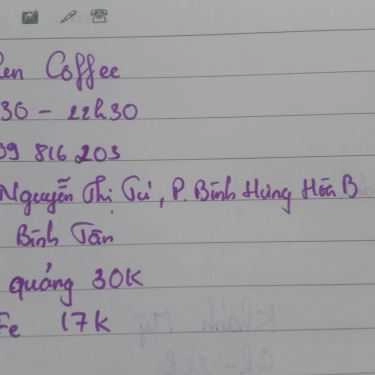 en Coffee
30 - 22h30
09 816 203
Nguyễn Thị Tú, P. Bình Hưng Hòa B
Bình Tân
quảng 30K
Fe 17K